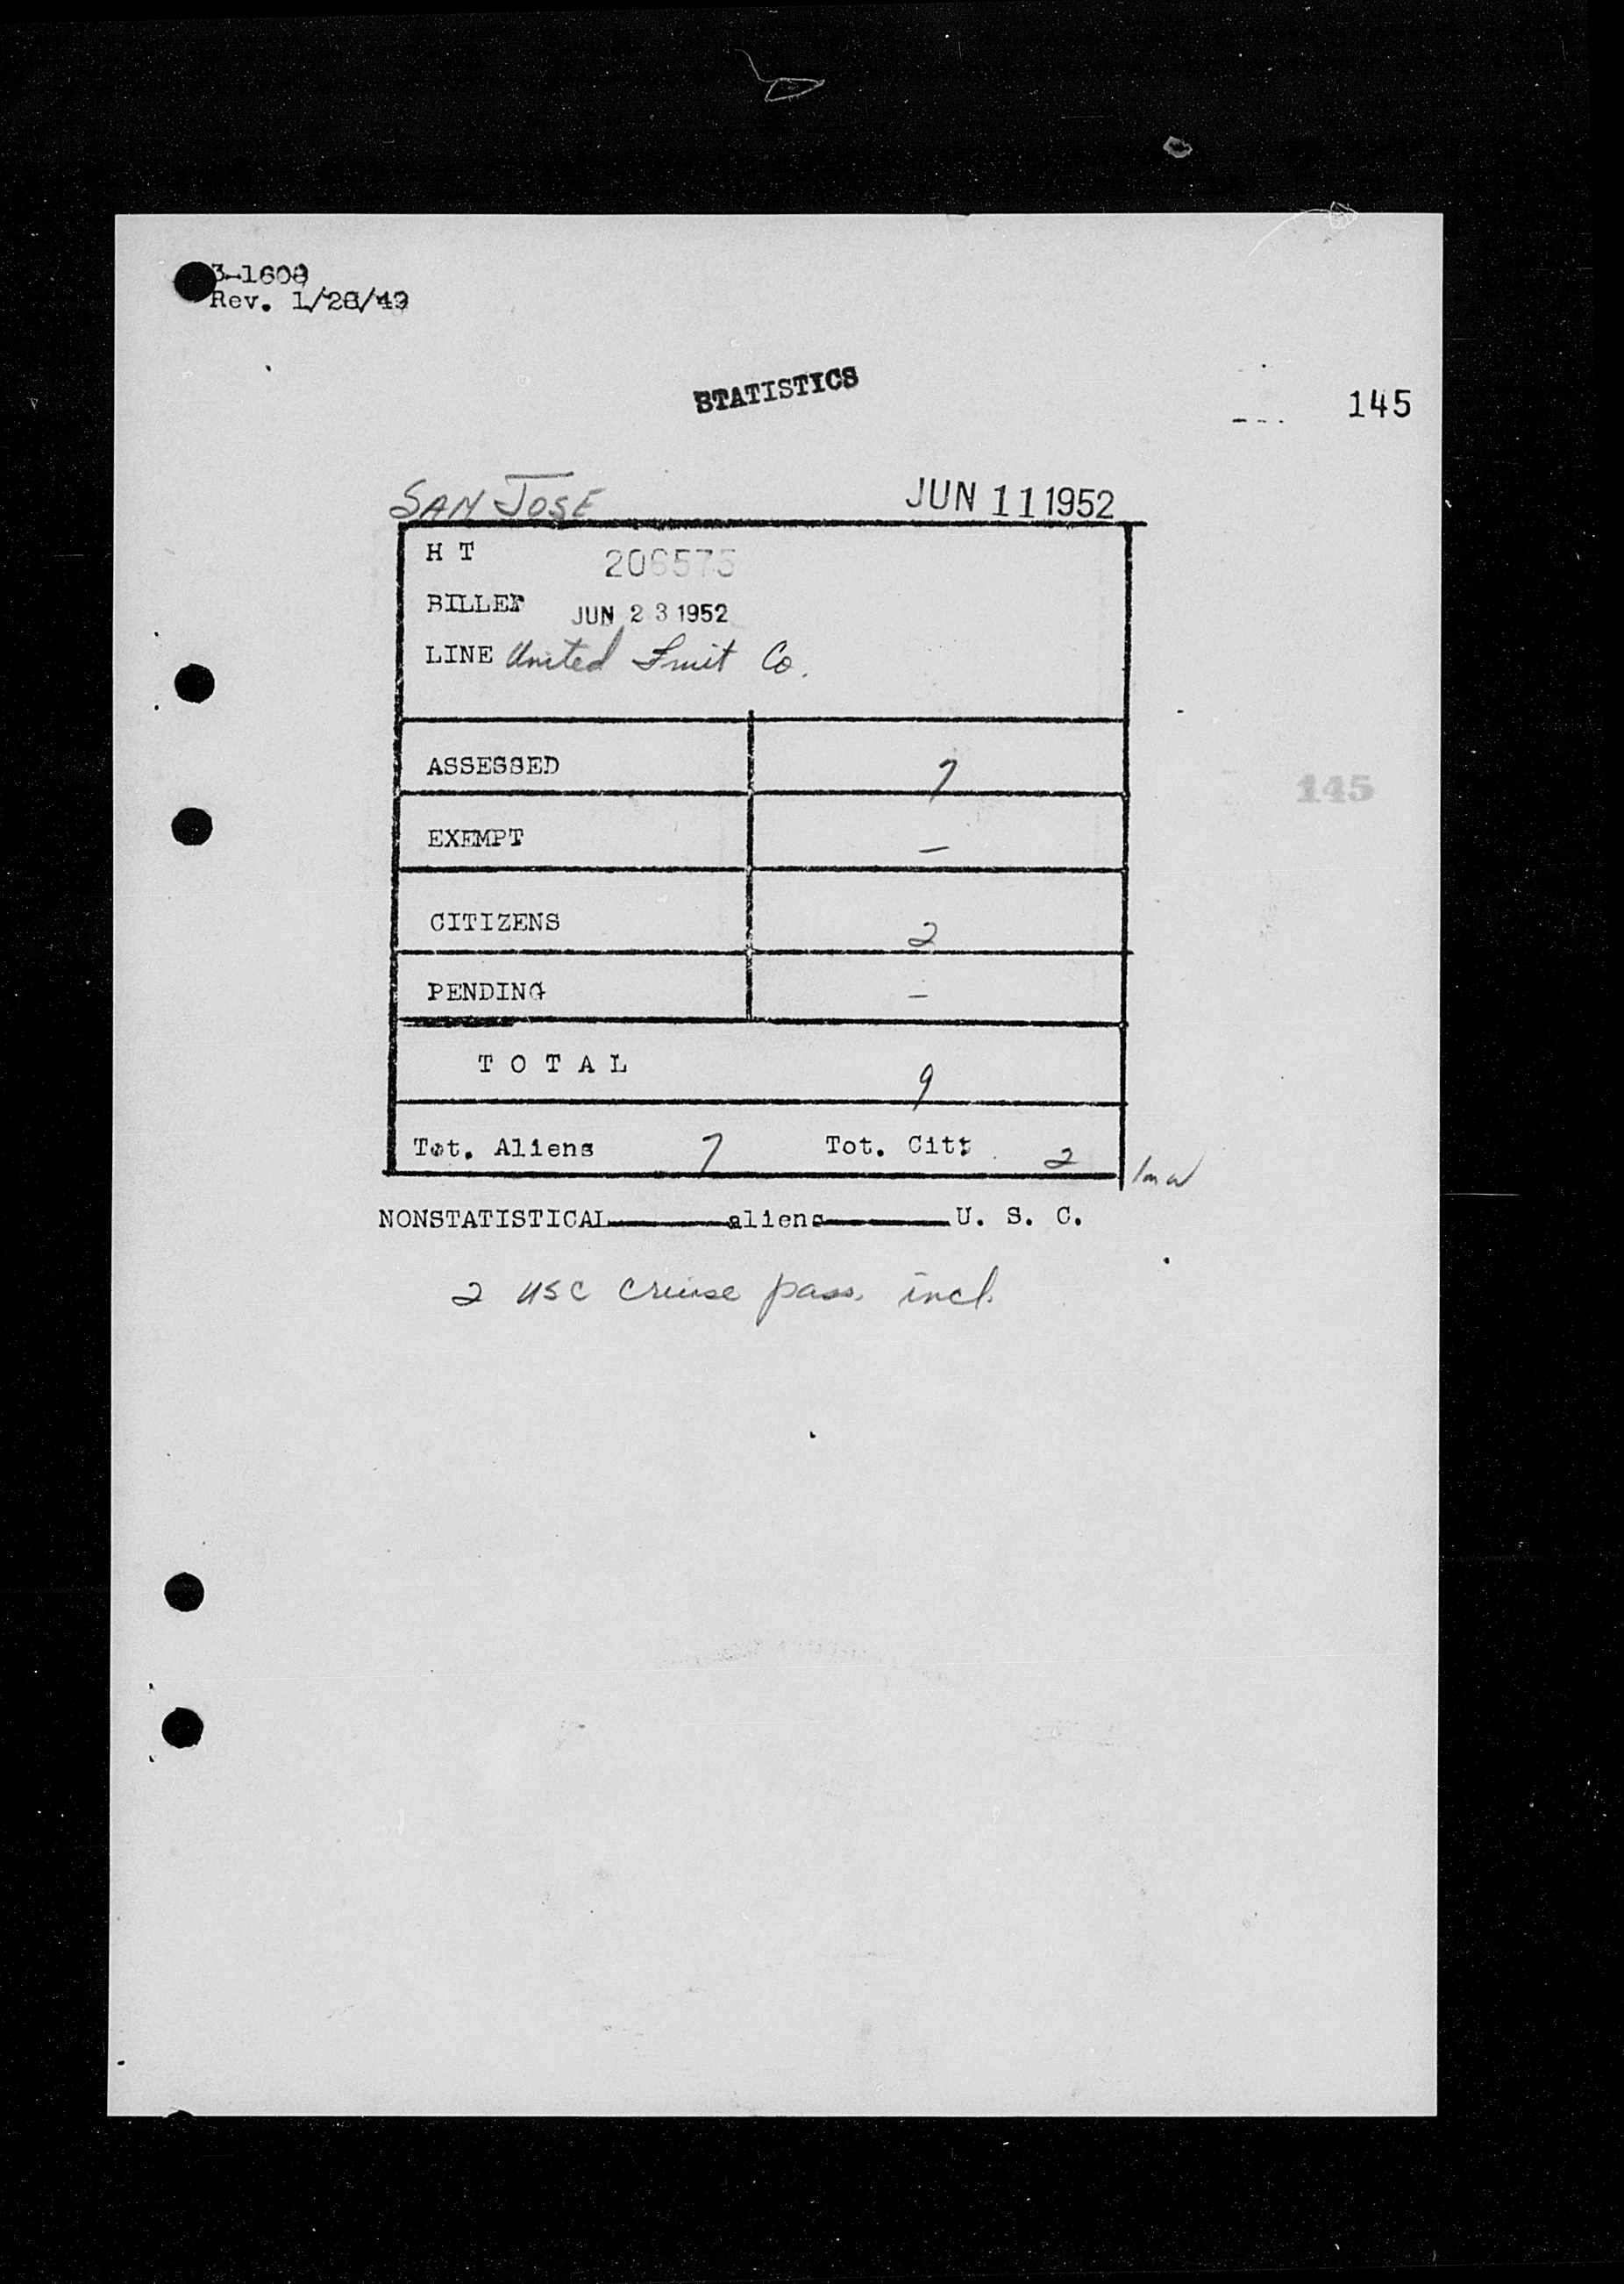 3-1608
Rev. 1/28/49
STATISTICS
145
SAN JOSE JUN 11 1952
H T 206575
BILLED JUN 23 1952
LINE United Fruit Co.
ASSESSED 7
145
EXEMPT –
CITIZENS 2
PENDING –
T O T A L 9
Tot. Aliens 7 Tot. Cit: 2
NONSTATISTICAL aliens U. S. C.
2 USC cruise pass. incl.